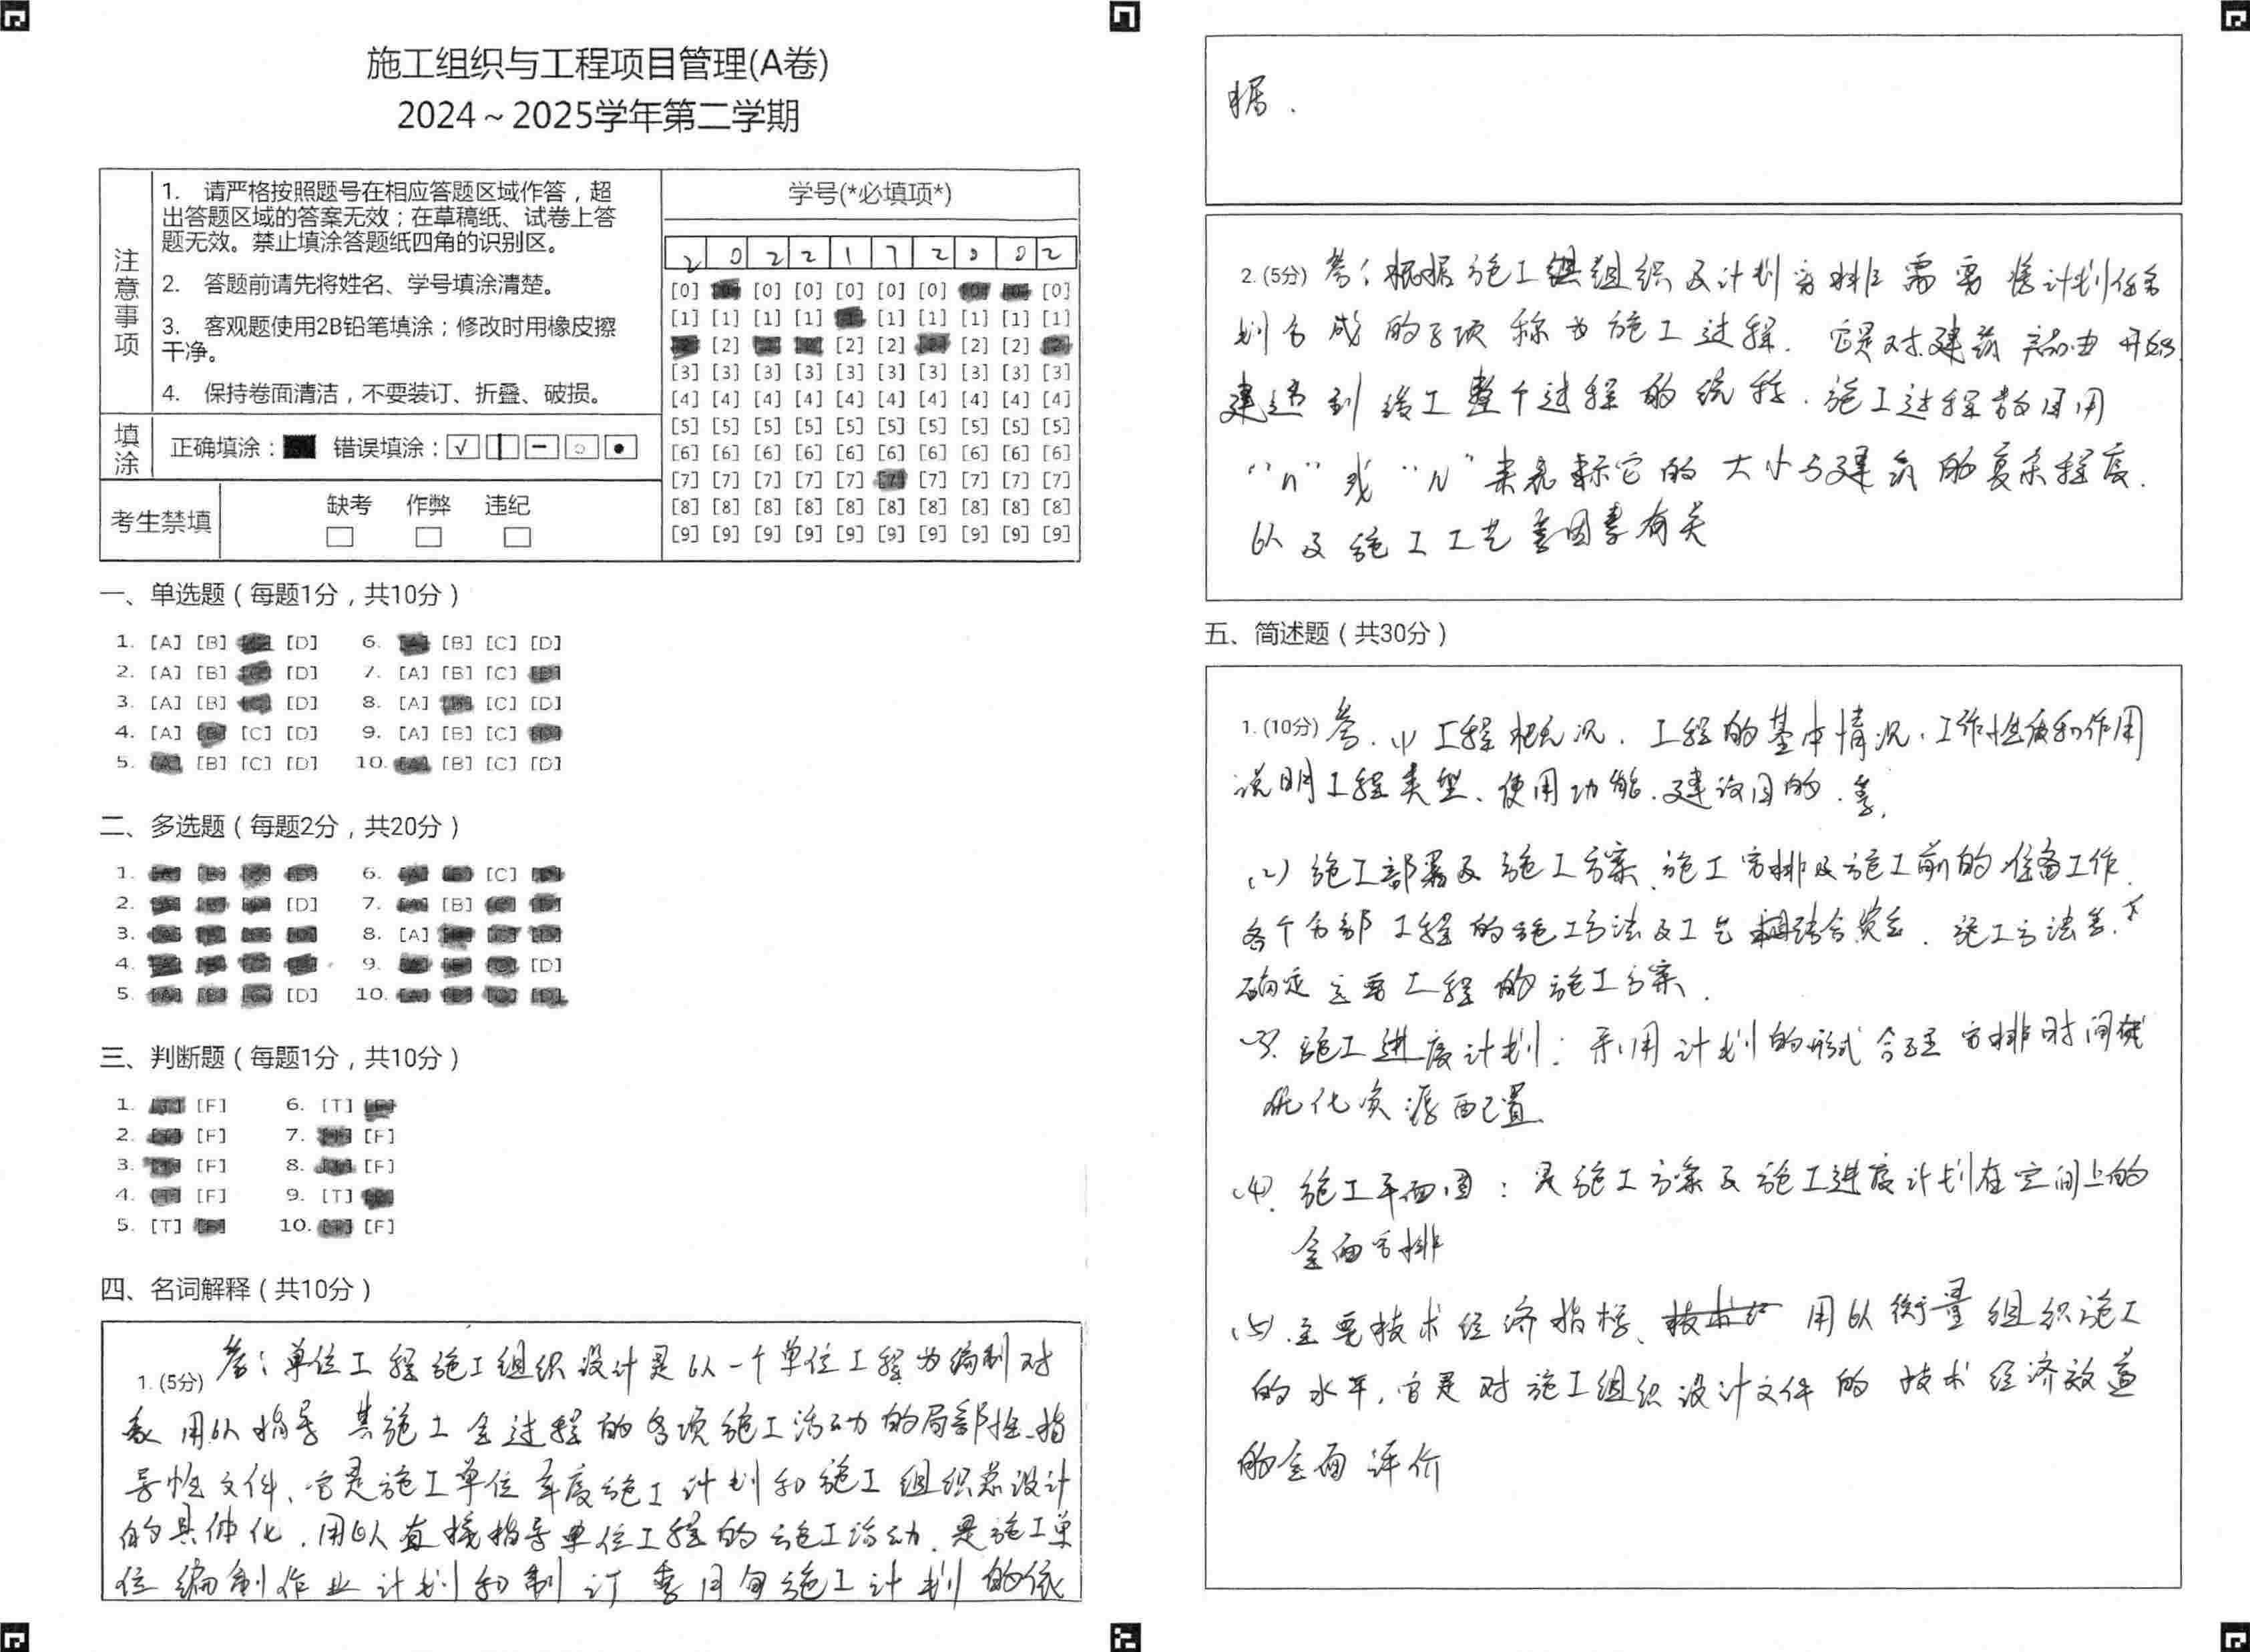 施工组织与工程项目管理(A卷)
2024～2025学年第二学期
注意事项
1. 请严格按照题号在相应答题区域作答，超
出答题区域的答案无效；在草稿纸、试卷上答
题无效。禁止填涂答题纸四角的识别区。
2. 答题前请先将姓名、学号填涂清楚。
3. 客观题使用2B铅笔填涂；修改时用橡皮擦
干净。
4. 保持卷面清洁，不要装订、折叠、破损。
填涂
正确填涂： 错误填涂：
考生禁填
缺考 作弊 违纪
学号(*必填项*)
2 0 2 2 1 7 2 0 0 2
[0] [0] [0] [0] [0] [0] [0] [0]
[1] [1] [1] [1] [1] [1] [1] [1] [1]
[2] [2] [2] [2] [2]
[3] [3] [3] [3] [3] [3] [3] [3] [3] [3]
[4] [4] [4] [4] [4] [4] [4] [4] [4] [4]
[5] [5] [5] [5] [5] [5] [5] [5] [5] [5]
[6] [6] [6] [6] [6] [6] [6] [6] [6] [6]
[7] [7] [7] [7] [7] [7] [7] [7] [7] [7]
[8] [8] [8] [8] [8] [8] [8] [8] [8] [8]
[9] [9] [9] [9] [9] [9] [9] [9] [9] [9]
一、单选题（每题1分，共10分）
1. [A] [B] [D] 6. [B] [C] [D]
2. [A] [B] [D] 7. [A] [B] [C]
3. [A] [B] [D] 8. [A] [C] [D]
4. [A] [C] [D] 9. [A] [B] [C]
5. [B] [C] [D] 10. [B] [C] [D]
二、多选题（每题2分，共20分）
1. 6. [C]
2. [D] 7. [B]
3. 8. [A]
4. 9. [D]
5. [D] 10.
三、判断题（每题1分，共10分）
1. [F] 6. [T]
2. [F] 7. [F]
3. [F] 8. [F]
4. [F] 9. [T]
5. [T] 10. [F]
四、名词解释（共10分）
1. (5分) 答：单位工程施工组织设计是以一个单位工程为编制对
象 用以指导 其施工全过程的各项施工活动的局部性、指
导性文件、它是施工单位年度施工计划和施工组织总设计
的具体化，用以直接指导单位工程的施工活动，是施工单
位编制作业计划和制订季月旬施工计划的依
据．
2. (5分) 答：根据施工组织及计划安排需要将计划任务
划分成的子项称为施工过程．它是对建筑产品由开始
建造到竣工整个过程的统称．施工过程数目用
“n”或“N”来表示它的大小与建筑的复杂程度．
以及施工工艺等因素有关
五、简述题（共30分）
1. (10分) 答．(1) 工程概况．工程的基本情况，工作性质和作用
说明工程类型、使用功能、建设目的．等．
(2) 施工部署及施工方案、施工安排及施工前的准备工作．
各个分部工程的施工方法及工艺 施工方法等．
确定主要工程的施工方案．
(3)．施工进度计划：采用计划的形式合理安排时间
优化资源配置
(4)．施工平面图：是施工方案及施工进度计划在空间上的
全面安排
(5)．主要技术经济指标、用以衡量组织施工
的水平，它是对施工组织设计文件的技术经济效益
的全面评价